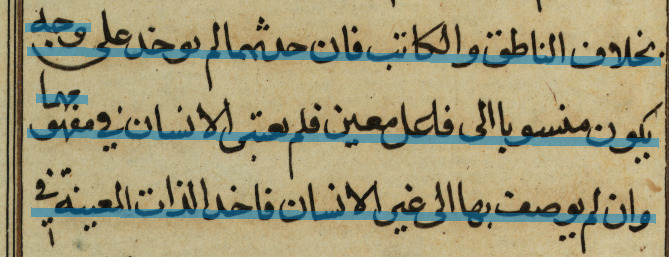 بخلاف الناطق والكاتب فان حدثهما لم يوخذ على وجه
يكون منسوبا الى فاعل معين فلم يعتبر الانسان في مفهومهما
وان لم يوصف بها الى غير الانسان فاخذ الذات المعينة في